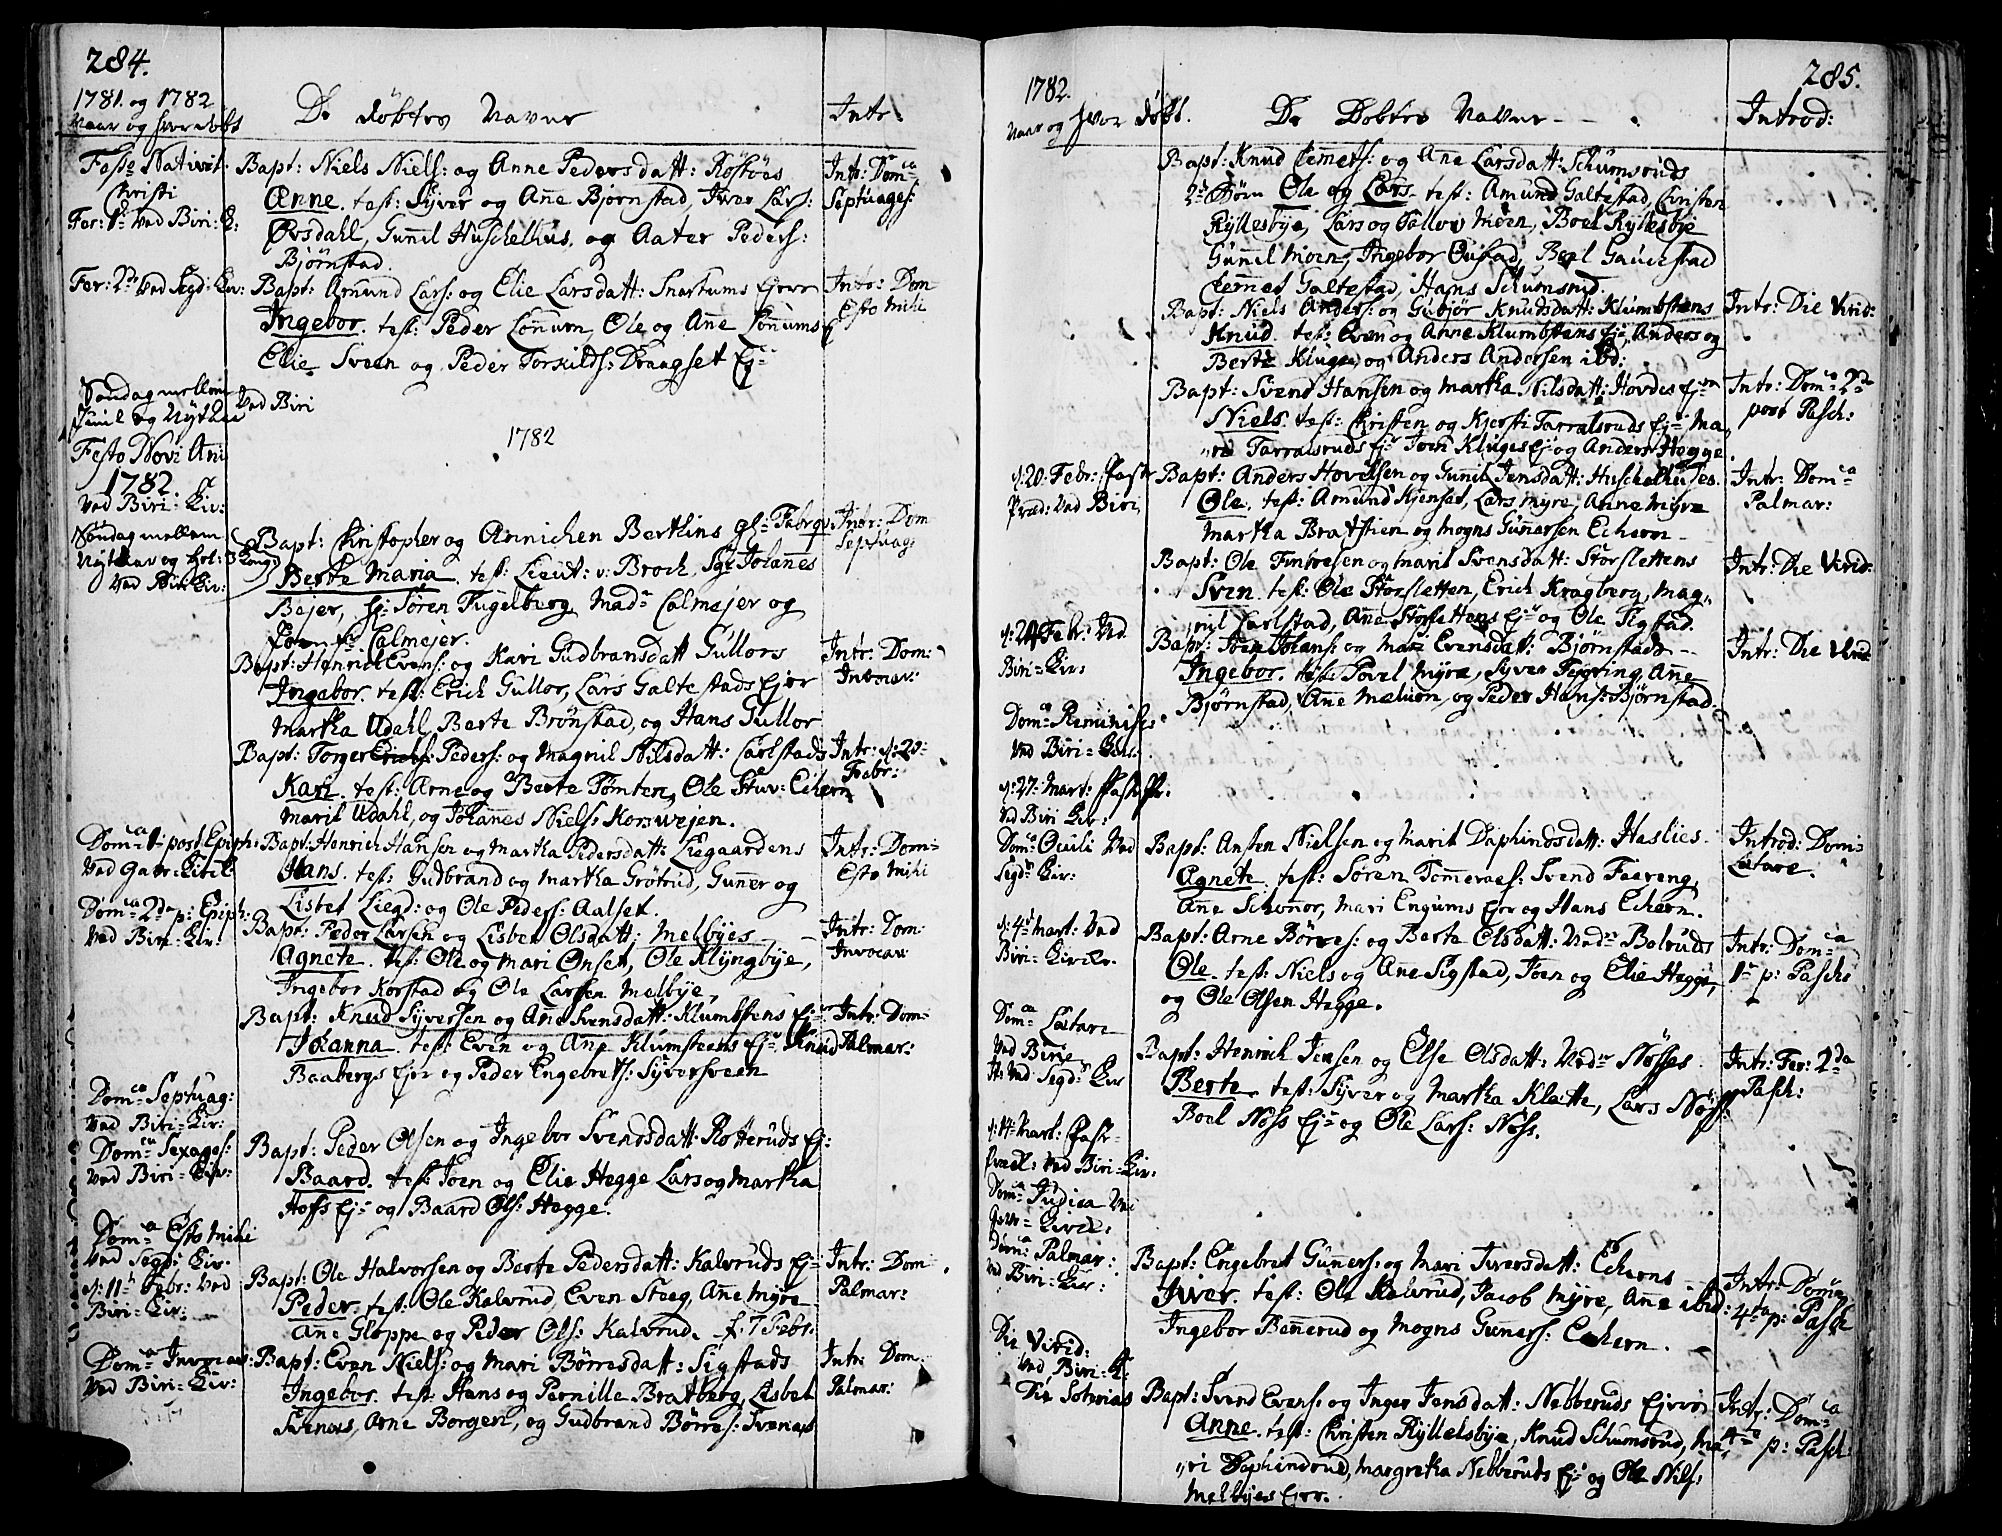 284.
1781. og 1782
Naar og hvor døbt
De døbtes Navne
Intr:
Festo Nativit:
Christi
Fer: 1ma Ved Biri: K:
Bapt: Niels Niels: og Anne Pedersdatt:
Anne. test: Syver og Anne Bjørnstad, Iver Lars:
Ørsdahl, Gunnil Huschelhus, og Aater Peders:
Bjørnstad.
Intr: Domca
Septuages:
Fer: 2da Ved Segd: Kir:
Bapt: Amund Lars: og Elie Larsdatt: Snartums Ejer
Ingebor. test: Peder Lønnum, Ole og Anne Lønnums
Elie Sveen og Peder Torkilds: Draagset Ej:
Intr: Dom
Esto Mihi
Søndag mellem
Juul og Nytaar
Ved Biri
Festo Novi Ani
1782.
Ved Biri: Kir:
1782
Søndag mellem
Nytaar og Hel: 3 Kong:
Ved Biri Kir:
Bapt: Christopher og Annichen Berthins gl: Fabrqv:
Berte Maria. test: Lieut: v: Broch, Sr: Johannes
Bejer, Sr: Søren Fugelberg Mad: Calmejer og
Jomfr: Calmejer.
Intr: Dom
Septuag:
Bapt: Henric Evens: og Kari Gudbransdatt Gullors
Ingebor. test: Erich Gullor, Lars Galtestads Ejer
Martha Udahl, Berte Brønstad, og Hans Gullor
Intr: Dom:
Invocav:
Bapt: Torger Peders: og Magnil Nilsdatt: Carlstads
Kari. test: Arne og Berte Tømten, Ole Stuv: Echern
Marit Udahl, og Johanes Niels: Korsvejen.
Intr: d: 20
Febr:
Domca 1 post Epiph:
Ved Gaar: Kirck
Bapt: Henrich Hansen og Martha Pedersdatt: Liegaardens
Hans. test: Gudbrand og Martha Grøtrud, Gunner og
Lisbet Liegd: og Ole Peders: Aalset.
Intr: Dom
Esto Mihi
Domca 2da p: Epiph:
Ved Biri: Kir:
Bapt: Peder Larsen og Lisbet Olsdatt: Melbyes
Agnete. test: Ole og Mari Onset, Ole Klyngbye,
Ingebor Korstad og Ole Larsen Melbye,
Intr: Dom:
Invocav
Bapt: Knud Syversen og Anne Svensdatt: Klumbstens Ej:
Johanna. test: Even og Ane Klumsteens Ej: Knud
Baabergs Ejer og Peder Engebrets: Syversveen
Intr: Dom:
Palmar:
Domca Septuag:
Ved Biri: Kir:
Domca Sexages:
Ved Biri: Kir:
Bapt: Peder Olsen og Ingebor Svendsdatt: Rotteruds Ej:
Baard. test: Joen og Elie Hegge Lars og Martha
Hoffs Ej: og Baard Ols: Hegge.
Domca Esto Mihi
Ved Segd: Kir:
d: 11te Febr: Ved
Biri: Kir:
Bapt: Ole Halvorsen og Berte Pedersdatt: Kalvruds Ej:
Peder. test: Ole Kalvrud, Even Steeg, Anne Myre
Ane Gloppe og Peder Ols: Kalvrud. f: 7 Febr:
Intr: Dom
Palmar:
Domca Invocav:
Ved Biri: Kir:
Bapt: Even Niels: og Mari Børresdatt: Sigstads
Ingebor. test: Hans og Pernille Bratberg, Lisbet
Svenæs, Arne Borgen, og Gudbrand Børres: Svenæs
Intr: Dom:
Palmar:
285.
1782.
Naar og hvor døbt.
De Døbtes Navne
Introd:
Bapt: Knud Clemets: og Ane Larsdatt: Schumsruds
2de Børn Ole og Lars. test: Amund Galtestad, Christen
Ryllesbye, Lars og Tallov Moen, Boel Ryllesbye
Gunnil Moen, Ingebor Øustad, Boel Gauestad
Clemet Galtestad, Hans Schumsrud.
Bapt: Niels Anders: og Gubjør Knudsdatt: Klumbstens
Knud. test: Even og Anne Klumbstens Ej: Anders og
Berte Kluge, og Anders Andersen ibd:
Intr: Die Virid:
Bapt: Svend Hansen og Martha Nilsdatt: Hovdes Ejer
Niels. test: Christen og Kjersti Tarralsruds Ej: Ma„
„rit Tarralsruds Ej: Joen Kluges Ej: og Anders Hegge
Intr: Domca 2da
post Pasch:
d: 20 Febr: Fast
Præd: Ved Biri
Bapt: Anders Hovelsen og Gunnil Jensdatt: Huschelhuses.
Ole. test: Amund Kjenset, Lars Myre, Anne Myre
Martha Bratstien og Mogns Gunnersen Echern
Intr: Domca
Palmar:
Bapt: Ole Fintesen og Marit Svensdatt: Storslettens
Sven. test: Ole Storsletten, Erich Kragberg, Mag„
„nil Carlstad, Ane Storslettens Ej: og Ole Sigstad.
Intr: Die Virid:
d: 24 Febr: Ved
Biri: Kir:
Bapt: Joen Johans: og Mari Evensdatt: Bjørnstads
Ingebor. test: Povel Myre, Syver Feyring, Ane
Bjørnstad, Ane Melum, og Peder Hans: Bjørnstad.
Intr: Die Virid:
Domca Reminisc:
Ved Biri: Kir:
d: 27: Mart: Fast Pr.
Ved Biri Kir:
Domca Oculi Ved
Segd: Kir:
Bapt: Ansten Nielsen og Marit Daphindsdatt: Haslies.
Agnete. test: Søren Tommeraas: Svend Faereng,
Ane Schonor, Mari Engums Ejer og Hans Echern.
Introd: Dom:
Lætare.
d: 4de Mart: Ved
Biri: Kirche.
Bapt: Arne Børres: og Berte Olsdatt: Vedr Bolruds
Ole. test: Niels og Ane Sigstad, Joen og Elie Hegge,
og Ole Olsen Hegge.
Intr: Domca
1ma p: Pasch:
Domca Lætare
Ved Biri
It: Ved Segd: Kir
Bapt: Henrich Jensen og Else Olsdatt: Vedr Nøsses
Berte. test: Syver og Martha Klætte, Lars Nøss
Boel Nøss Ej: og Ole Lars: Nøss.
Intr: Fer: 2da
Pasch:
d: 14 Mart: Fast
Præd: Ved Biri: Kir:
Domca Judica Ved
Gavr: Kirck:
Domca Palmar:
Ved Biri: Kir:
Bapt: Engebret Gunners: og Mari Iversdatt: Echerns
Iver. test: Ole Kalvrud, Jacob Myre, Ane ibid:
Ingebor Bennerud og Mogns Gunners: Echern.
Intr: Domca
4ta p: Pasch
Die Virid:
Ved Biri: K:
Die Soteriæs
Bapt: Svend Evens: og Inger Jensdatt: Nebberuds Ejer
Anne. test: Christen Ryllesbye, Knud Schumsrud, Ma„
„ri Daphindrud, Margretha Nebberuds Ej: og Ole Nils:
Melbyes Ejer.
Intr: Domca
4ta p: Pasch: